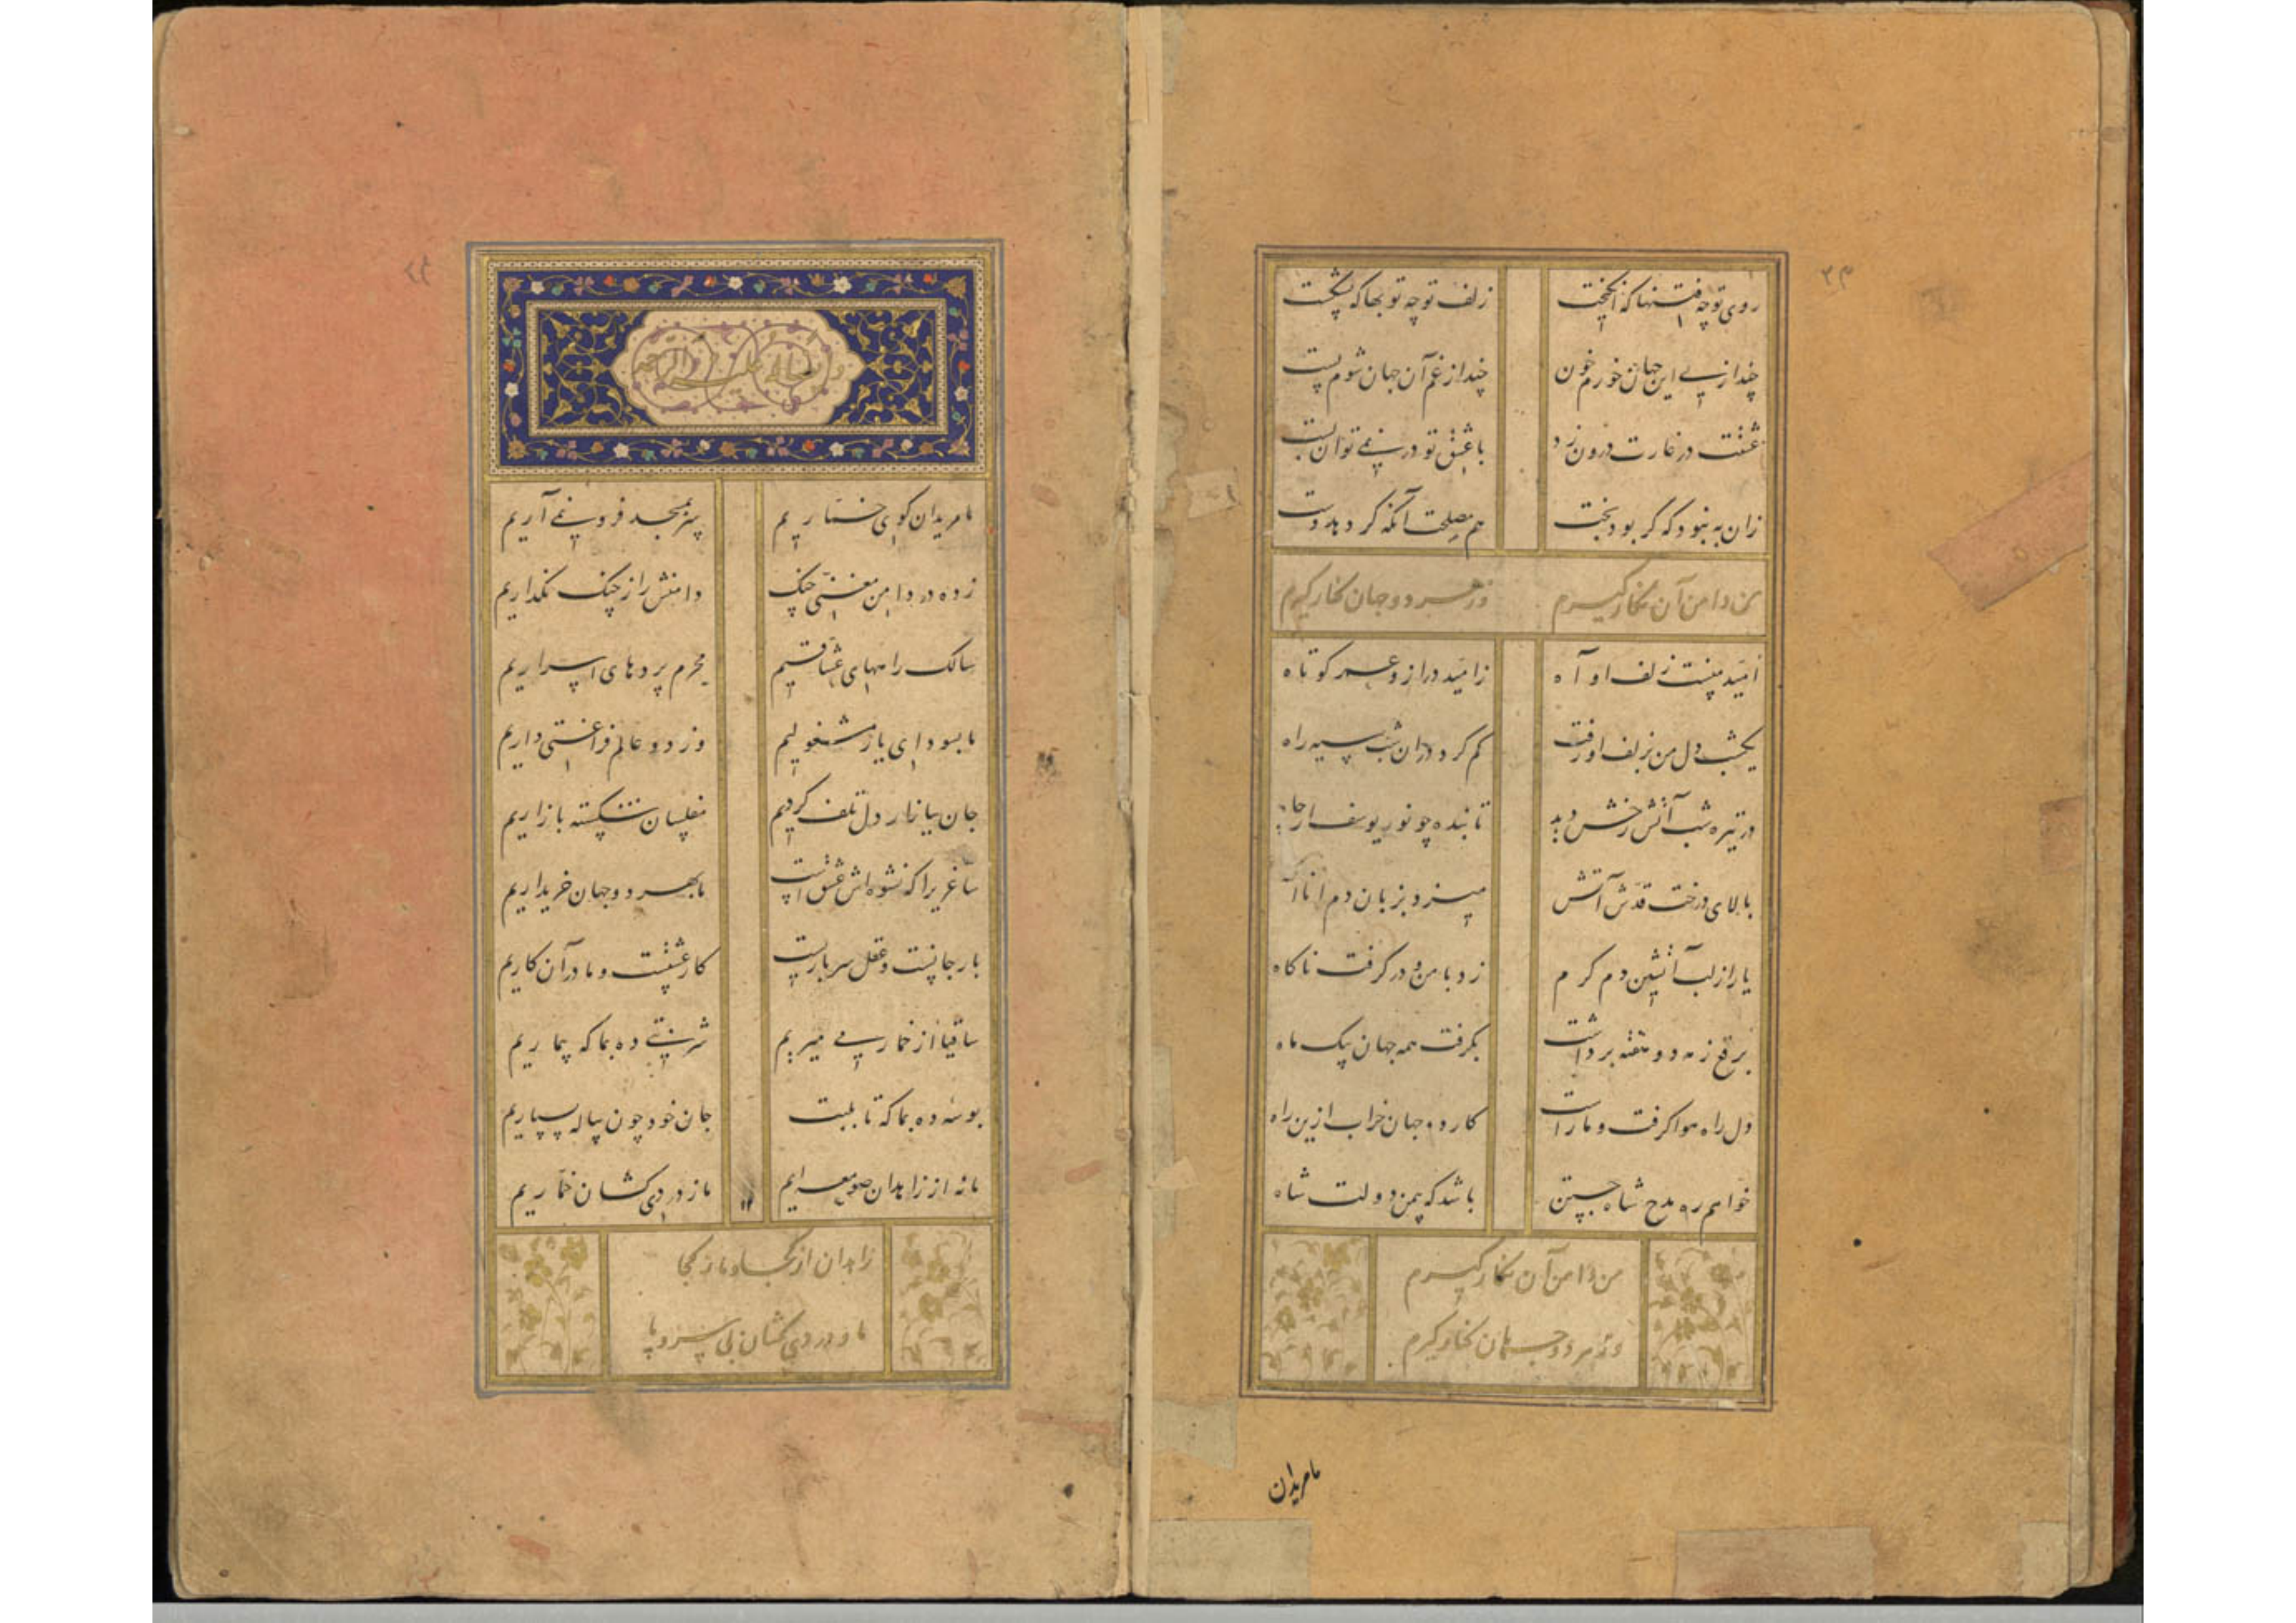 روی تو چه فتنها که انگیخت
زلف تو چه توبها که بشکست
چند از پی این جهان خورم خون
چند از غم آن جهان شوم پست
عشقت در غارت درون زد
با عشق تو در نمی توان بست
زان به نبود که گر بود بخت
هم مصلحت آنکه گر دهد دست
من دامن آن نگار گیرم
وز هر دو جهان کنار گیرم
امید منست زلف او آه
ز امید دراز و عمر کوتاه
یکشب دل من بزلف او رفت
گم کرد در آن شب سیه راه
در تیره شب آتش رخش دید
تابنده چو نور یوسف از چاه
بالای درخت قدش آتش
میزد بزبان دم انا الله
یار از لب آتشین دم گرم
زد با من و در گرفت ناگاه
برقع ز مه دو هفته برداشت
بگرفت همه جهان بیک ماه
دل راه هوا گرفت و ما راست
کار دو جهان خراب ازین راه
خواهم ره مدح شاه جستن
باشد که بیمن دولت شاه
من دامن آن نگار گیرم
وز هر دو جهان کنار گیرم
ما مریدان
ما مریدان کوی خماریم
سر بمسجد فرو نمی آریم
زده در دامن مغنی چنگ
دامنش را ز چنگ نگذاریم
سالک راههای عشاقیم
محرم پردهای اسراریم
ما بسودای یار مشغولیم
وز دو عالم فراغتی داریم
جان ببازار دل تلف کردیم
مفلسان شکسته بازاریم
ساغریرا که نشوه اش عشق است
ما بهر دو جهان خریداریم
بار جانست و عقل سر باریست
کار عشقست و ما در آن کاریم
ساقیا از خمار می میریم
شربتی ده بما که بیماریم
بوسه ده بما که تا بلبت
جان خود چون پیاله بسپاریم
ما نه از زاهدان صومعه ایم
ما ز دردی کشان خماریم
۱۲
زاهدان از کجا و ما ز کجا
ما و دردی کشان بی سر و پا